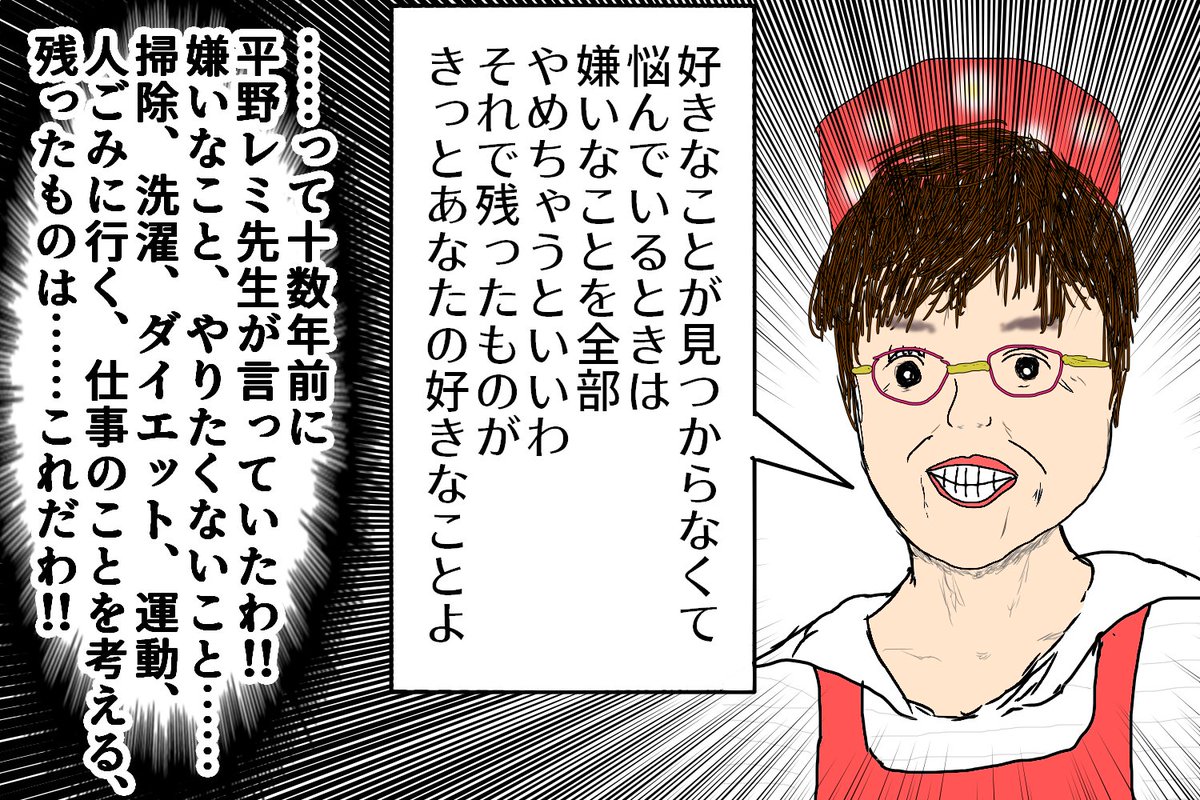 好きなことが見つからなくて
悩んでいるときは
嫌いなことを全部
やめちゃうといいわ
それで残ったものが
きっとあなたの好きなことよ
……って十数年前に
平野レミ先生が言っていたわ!!
嫌いなこと、やりたくないこと……
掃除、洗濯、ダイエット、運動、
人ごみに行く、仕事のことを考える、
残ったものは………これだわ!!